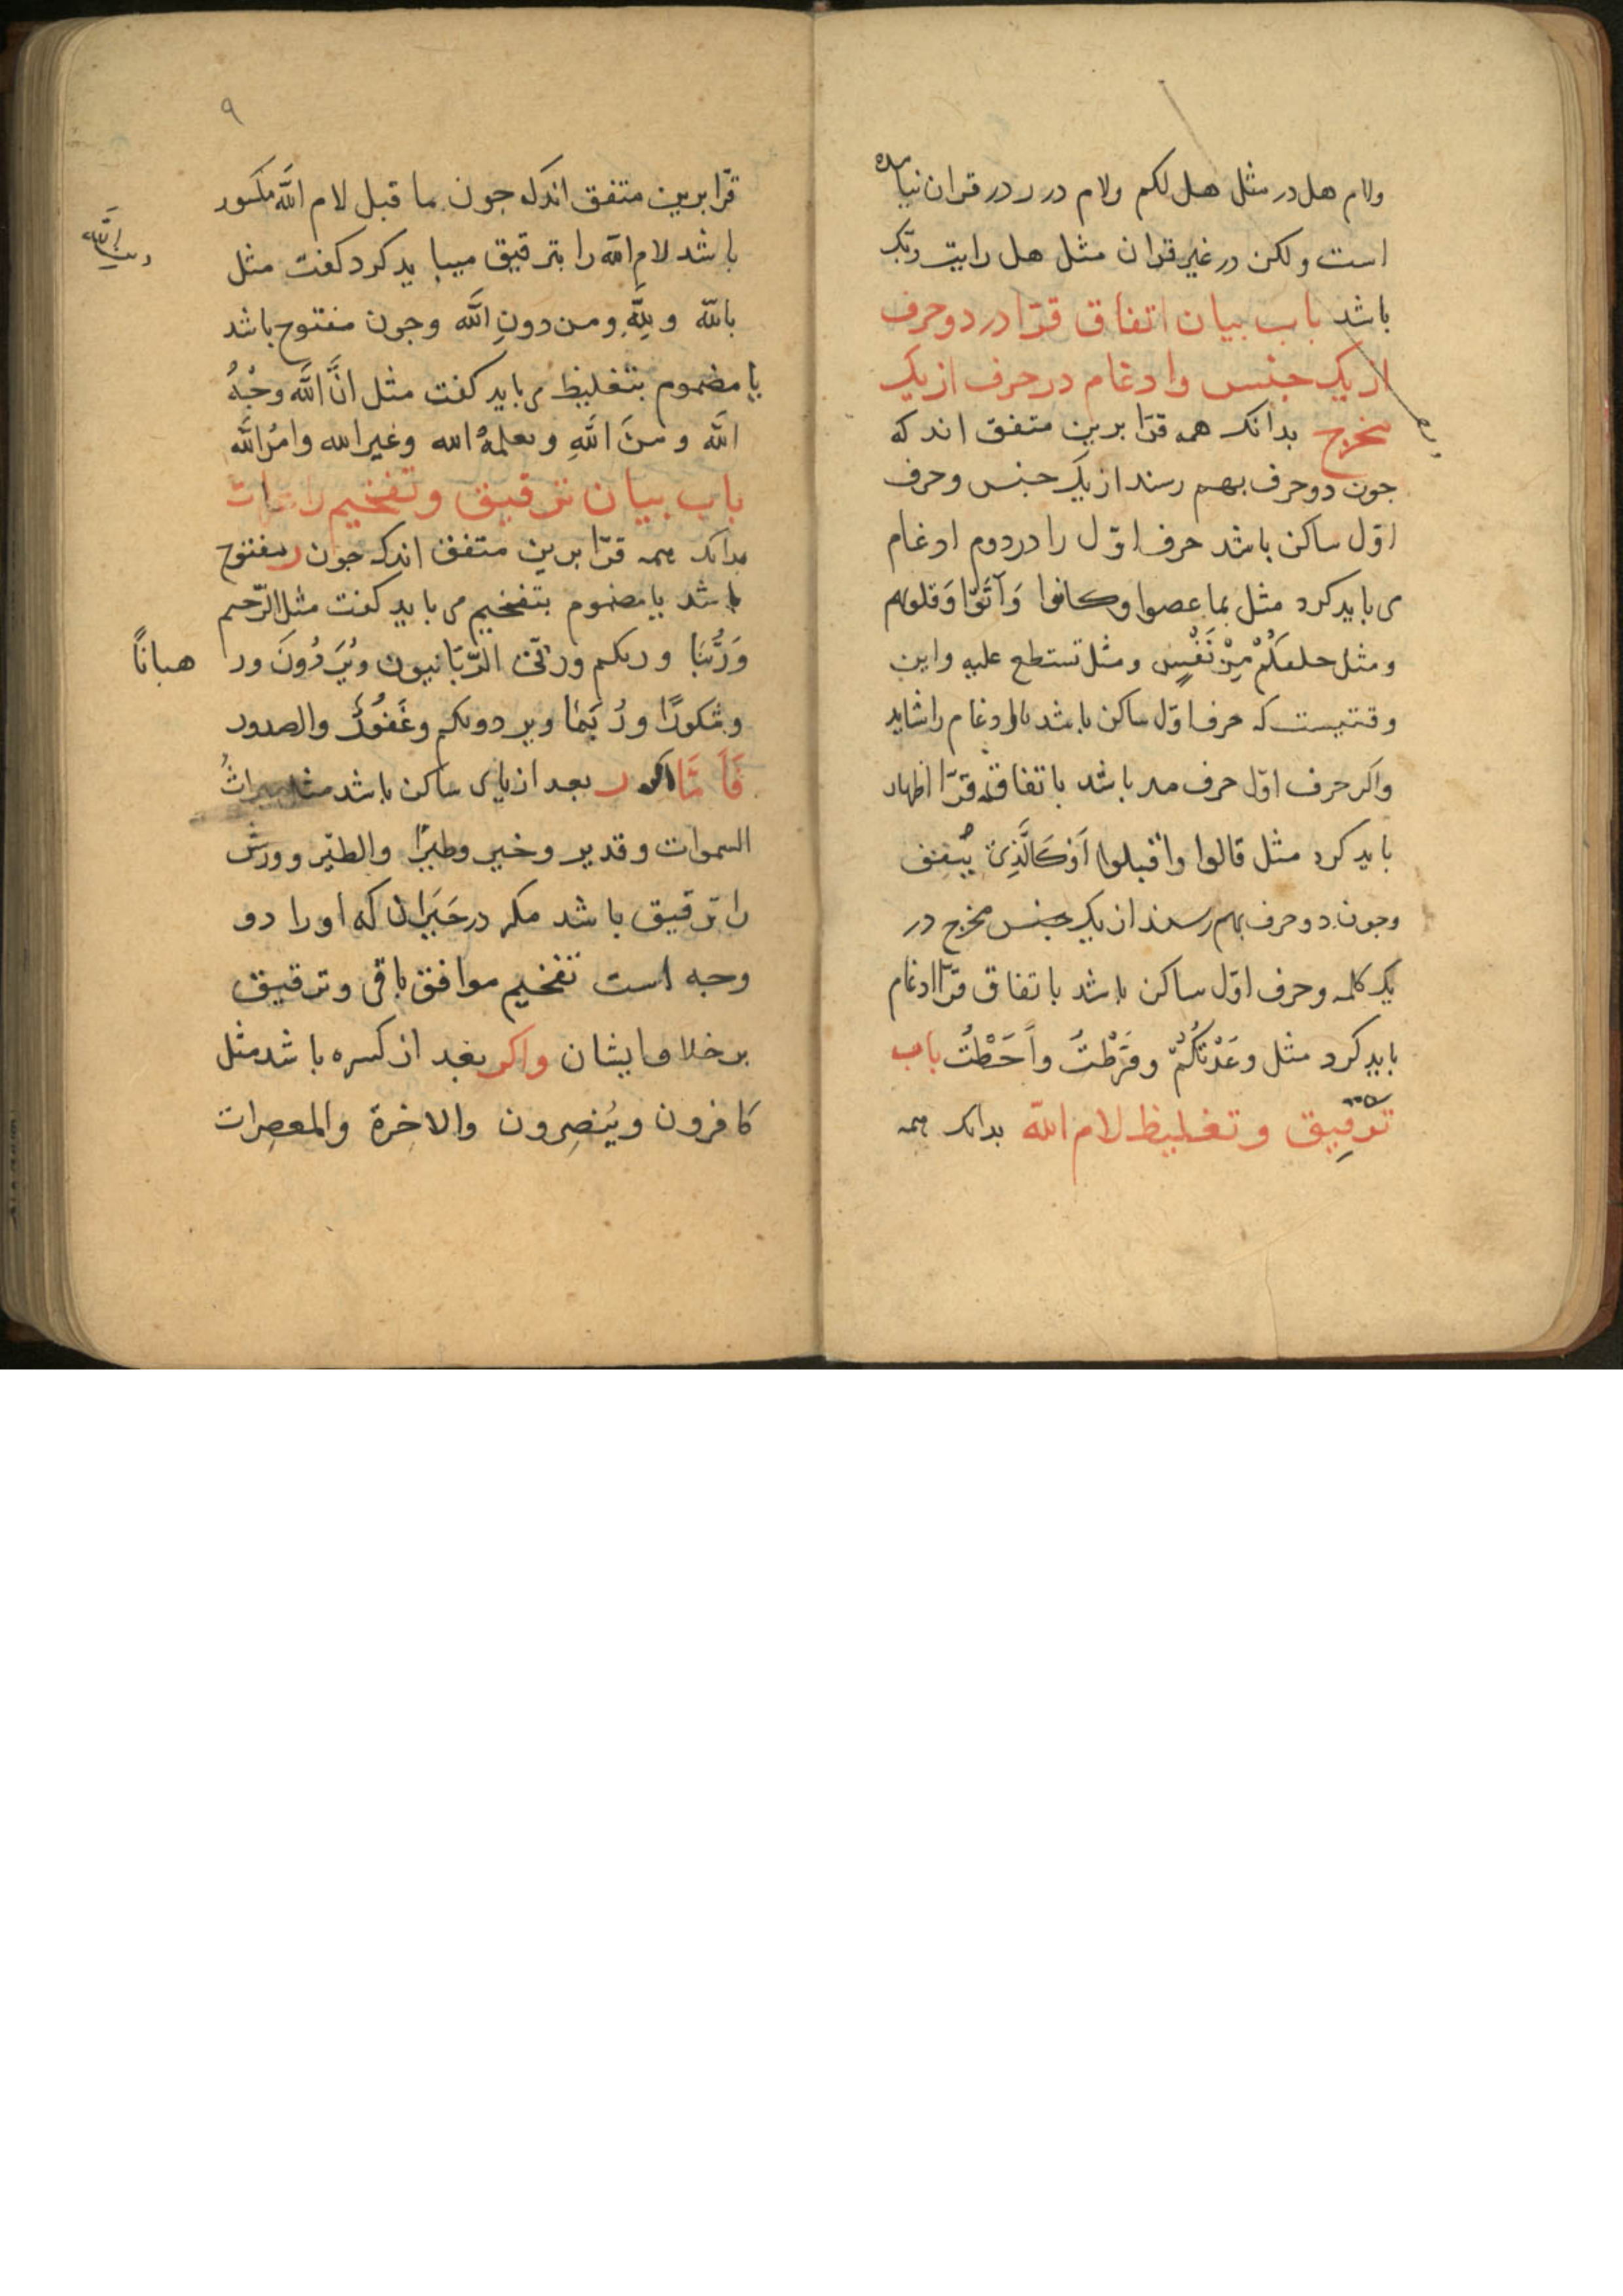 ولام هل در مثل هل لكم ولام در ر در قران نيامده
است ولكن در غير قران مثل هل رايت ربّك
باشد باب بيان اتفاق قرّا در دو حرف
از يك جنس وادغام در حرف از يك
مخرج بدانك همه قرّا برين متفق اند كه
جون دو حرف بهم رسند از يك جنس وحرف
اوّل ساكن باشد حرف اوّل را در دوم ادغام
مى بايد كرد مثل بما عصوا وكانوا
ومثل مِنْ نَفْسٍ ومثل تستطع عليه واين
وقتيست كه حرف اوّل ساكن باشد تا ادغام را شايد
واكر حرف اوّل حرف مد باشد باتفاق قرّا اظهار
بايد كرد مثل قالوا واقبلوا
وجون دو حرف بهم رسند از يك جنس مخرج در
يك كلمه وحرف اوّل ساكن باشد باتفاق قرّا ادغام
بايد كرد مثل وَعَدْتُكُمْ وفَرَّطْتُ وأَحَطْتُ باب
ترقيق وتغليظ لام الله بدانك همه
٩
قرّا برين متفق اندكه جون ما قبل لام الله مكسور
باشد لام الله را بترقيق ميبايد كرد كفت مثل
بالله ولِلّهِ ومن دونِ الله وجون مفتوح باشد
يا مضموم بتغليظ مى بايد كفت مثل انَّ الله وجْهُ
الله ومنَ اللهِ ويعلمهُ الله وغير الله وامرُ الله
باب بيان ترقيق وتفخيم راءات
بدانك همه قرّا برين متفق اندكه جون ر مفتوح
باشد يا مضموم بتفخيم مى بايد كفت مثل الرّحيم
وَرَبُّنَا وربكم وربّى الرّبّانيون ويُرَدُّونَ ور
هبانًا
وشكورًا ورُبَمَا ويردونكم وغَفُورٌ والصدور
فَأَمَّا اكر ر بعد از ياى ساكن باشد مثل ميراثُ
السموات وقدير وخبير وطيرًا والطيْر وورش
را ترقيق باشد مكر در حَيْرَان كه او را دو
وجه است تفخيم موافق باقى وترقيق
بر خلاف ايشان واكر بعد از كسره باشد مثل
كافرون ويُنصِرون والاخرة والمعصِرات